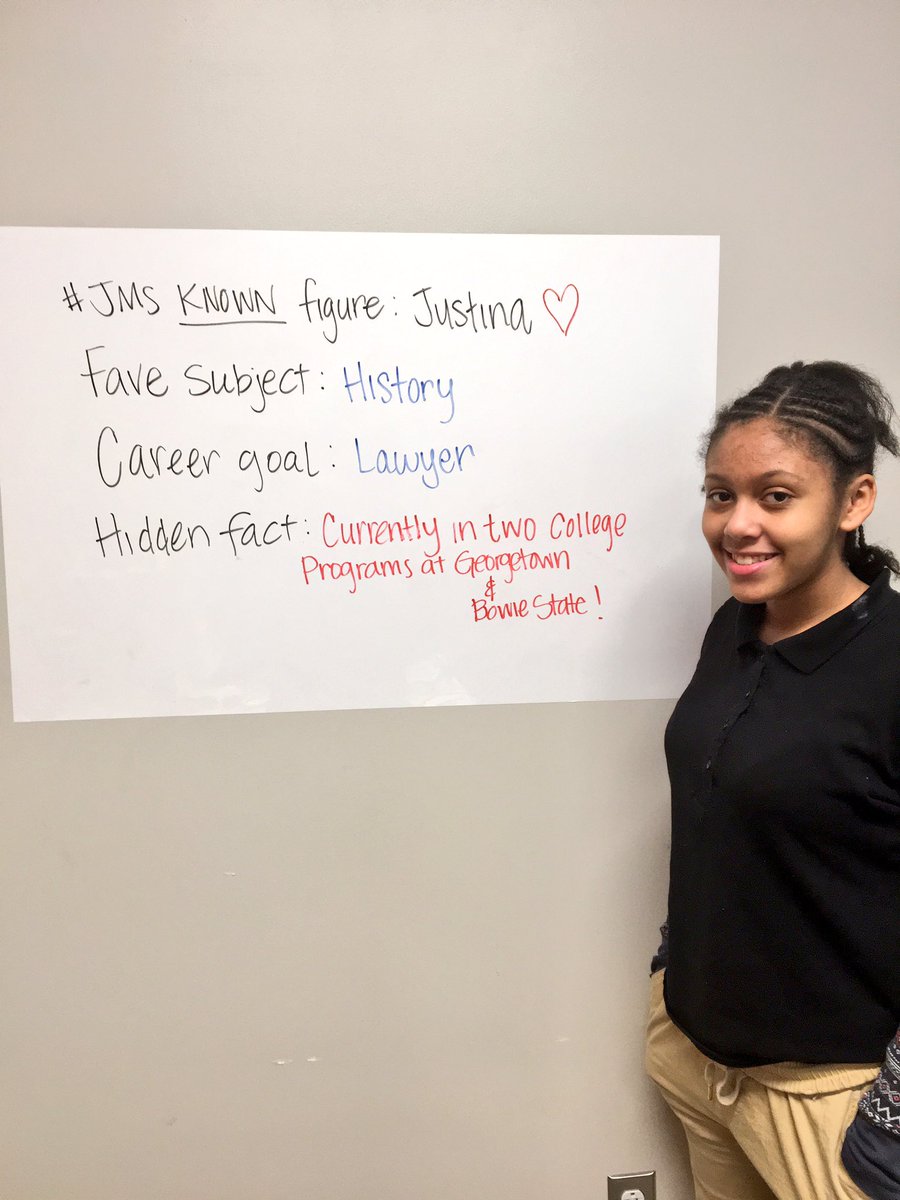 #JMS KNOWN figure: Justina
Fave subject: History
Career goal: Lawyer
Hidden fact: Currently in two College
Programs at Georgetown
&
Bowie State!